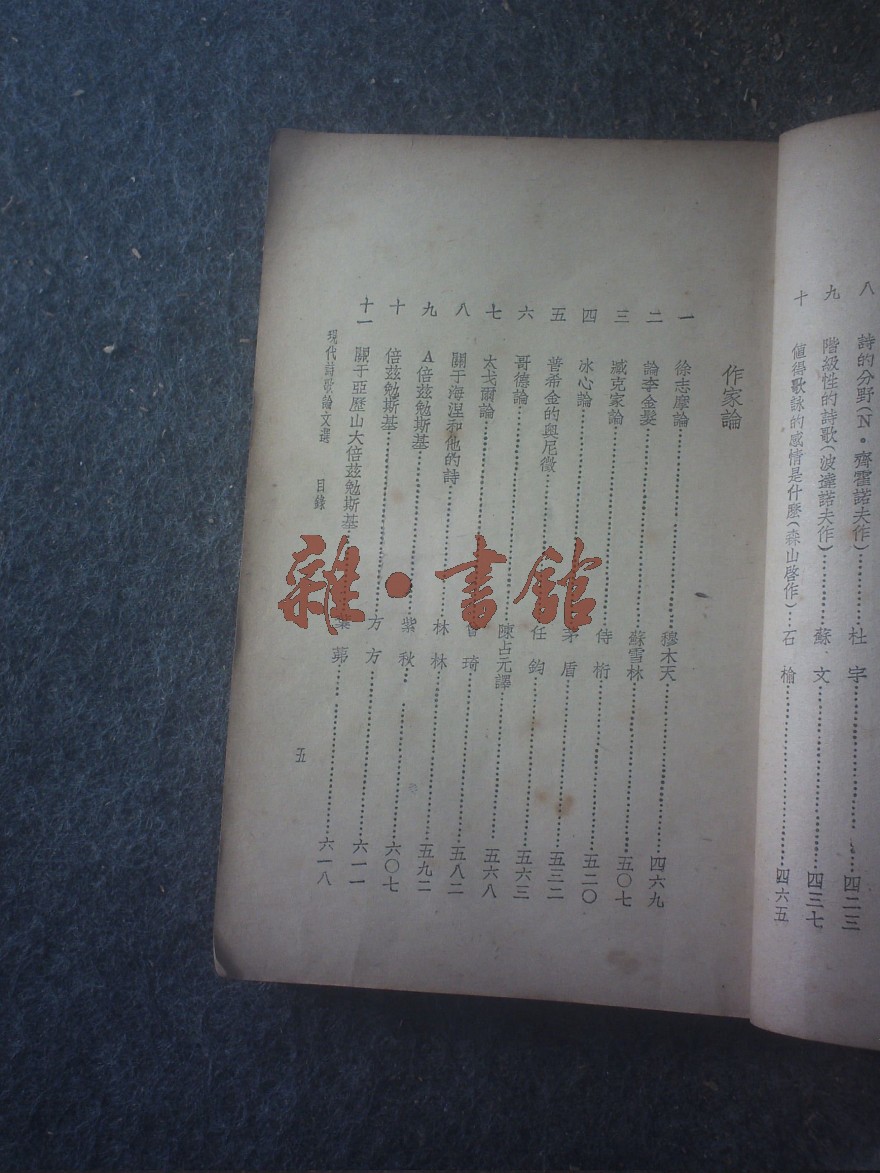 八 詩的分野(N・齊霍諾夫作)……杜宇……四二三
九 階級性的詩歌(波達諾夫作)……蘇文……四三七
十 値得歌詠的感情是什麽(森山啓作)…石楡……四六五
作家論
一 徐志摩論……穆木天……四六九
二 論李金髮……蘇雪林……五〇七
三 臧克家論……侍桁……五二〇
四 冰心論……茅盾……五三二
五 普希金的奥尼徵……任鈞……五六三
六 哥德論……陳占元譯……五六八
七 太戈爾論……琦……五八二
八 關于海涅和他的詩……林林……五九二
九 A倍兹勉斯基……紫秋……六〇七
十 倍兹勉斯基……方方……六一一
十一 關于亞歷山大倍兹勉斯基……六一八
現代詩歌論文選 目錄
五
雜・書館